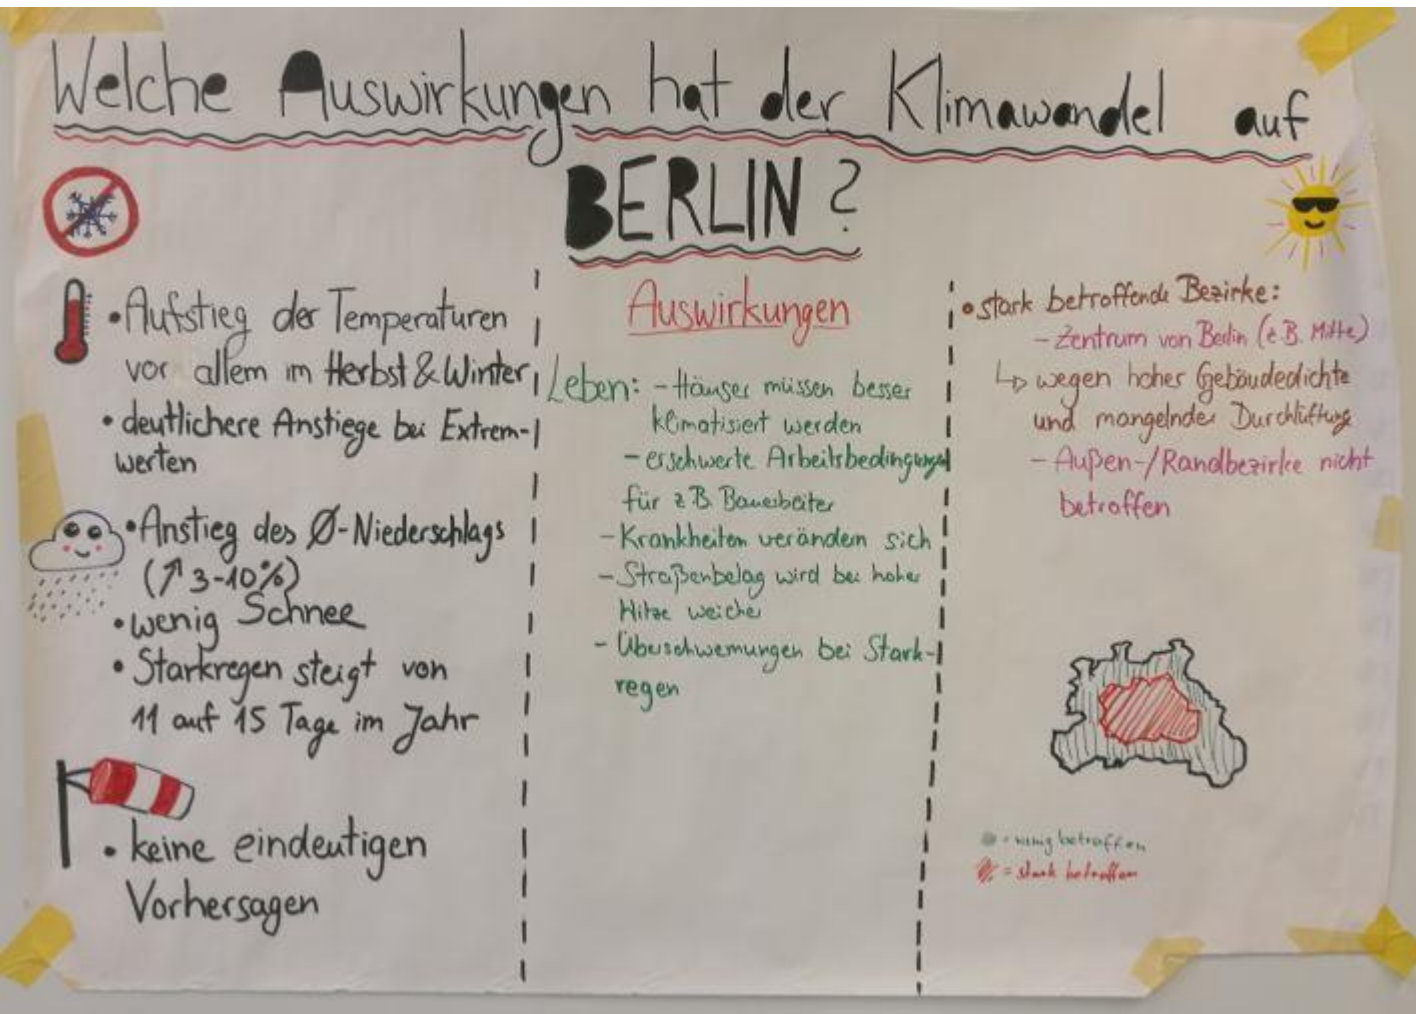 Welche Auswirkungen hat der Klimawandel auf
BERLIN?
• Aufstieg der Temperaturen
vor allem im Herbst & Winter
• deutlichere Anstiege bei Extrem-
werten
• Anstieg des Ø-Niederschlags
(↑ 3-10%)
• wenig Schnee
• Starkregen steigt von
11 auf 15 Tage im Jahr
• keine eindeutigen
Vorhersagen
Auswirkungen
Leben: - Häuser müssen besser
klimatisiert werden
- erschwerte Arbeitsbedingungen
für z.B. Bauarbeiter
- Krankheiten verändern sich
- Straßenbelag wird bei hoher
Hitze weicher
- Überschwemungen bei Stark-
regen
• stark betroffende Bezirke:
- Zentrum von Berlin (z.B. Mitte)
↳ wegen hoher Gebäudedichte
und mangelnder Durchlüftung
- Außen-/Randbezirke nicht
betroffen
= wenig betroffen
= stark betroffen